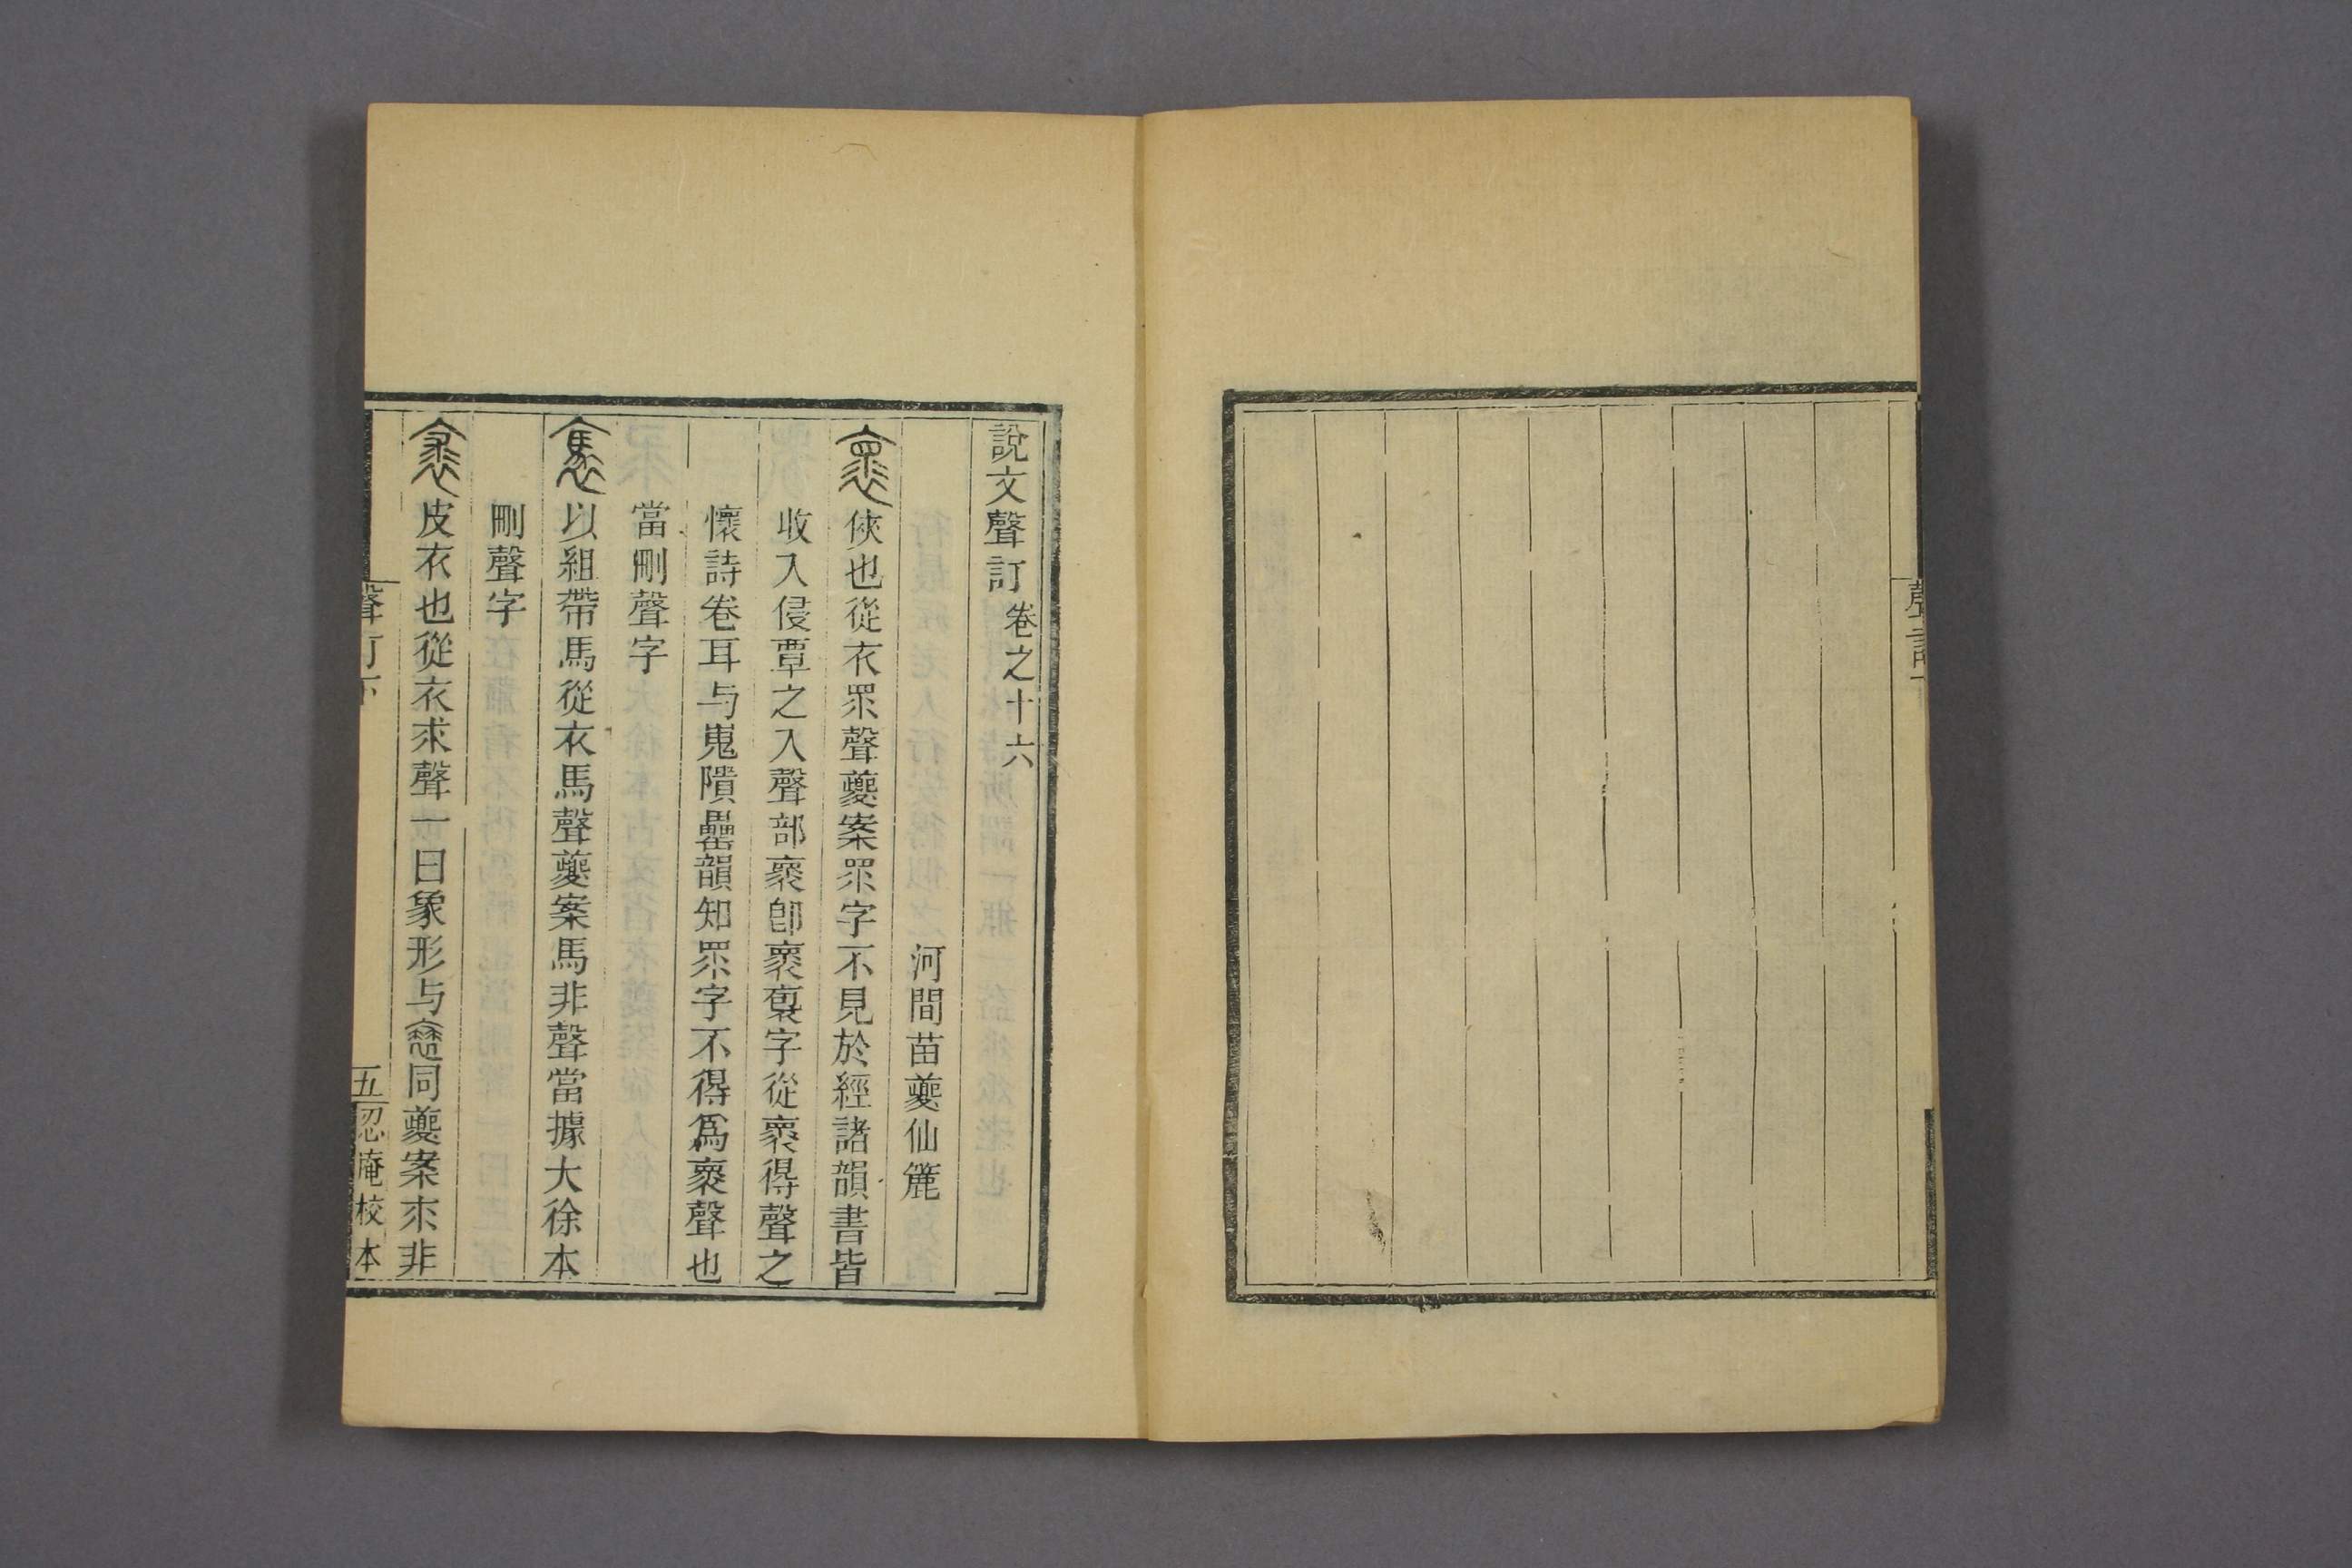 說文聲訂 卷之十六
河間苗夔仙簏
褱 俠也從衣眔聲夔案眔字不見於經諸韻書皆
收入侵覃之入聲部褱卽裹褢字從褱得聲之
懷詩卷耳与嵬隤罍韻知眔字不得爲褱聲也
當刪聲字
褭 以組帶馬從衣馬聲夔案馬非聲當據大徐本
刪聲字
裘 皮衣也從衣求聲一曰象形与同夔案朩非
聲訂下
五
忍庵校本
聲訂下